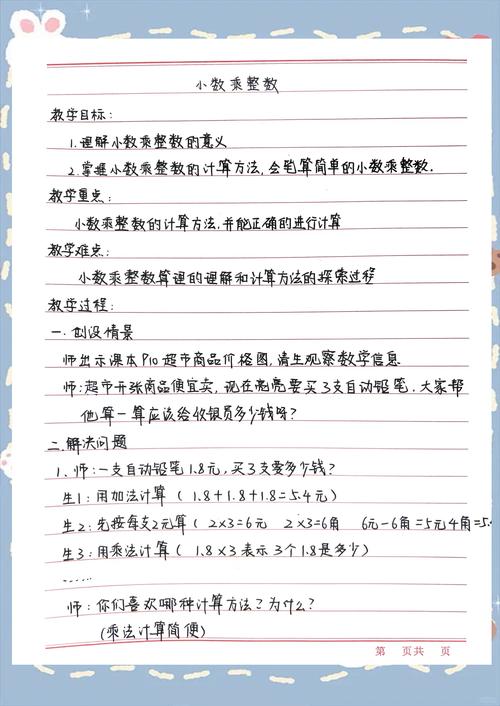 小数乘整数
教学目标:
1.理解小数乘整数的意义
2.掌握小数乘整数的计算方法,会笔算简单的小数乘整数.
教学重点:
小数乘整数的计算方法,并能正确的进行计算
教学难点:
小数乘整数算理的理解和计算方法的探索过程
教学过程:
一.创设情景
师出示课本P10超市商品价格图,请生观察数学信息
师:超市开张商品便宜卖,现在亮亮要买3支自动铅笔.大家帮
他算一算应该给收银员多少钱呀?
二.解决问题
1、师:一支自动铅笔1.8元,买3支要多少钱?
生1:用加法计算(1.8+1.8+1.8=5.4元)
生2:先按每支2元算(2×3=6元 2×3=6角 6元-6角=5元4角=5.
生3:用乘法计算(1.8×3表示3个1.8是多少)
……
师:你们喜欢哪种计算方法?为什么?
(乘法计算简便)
第 页共 页